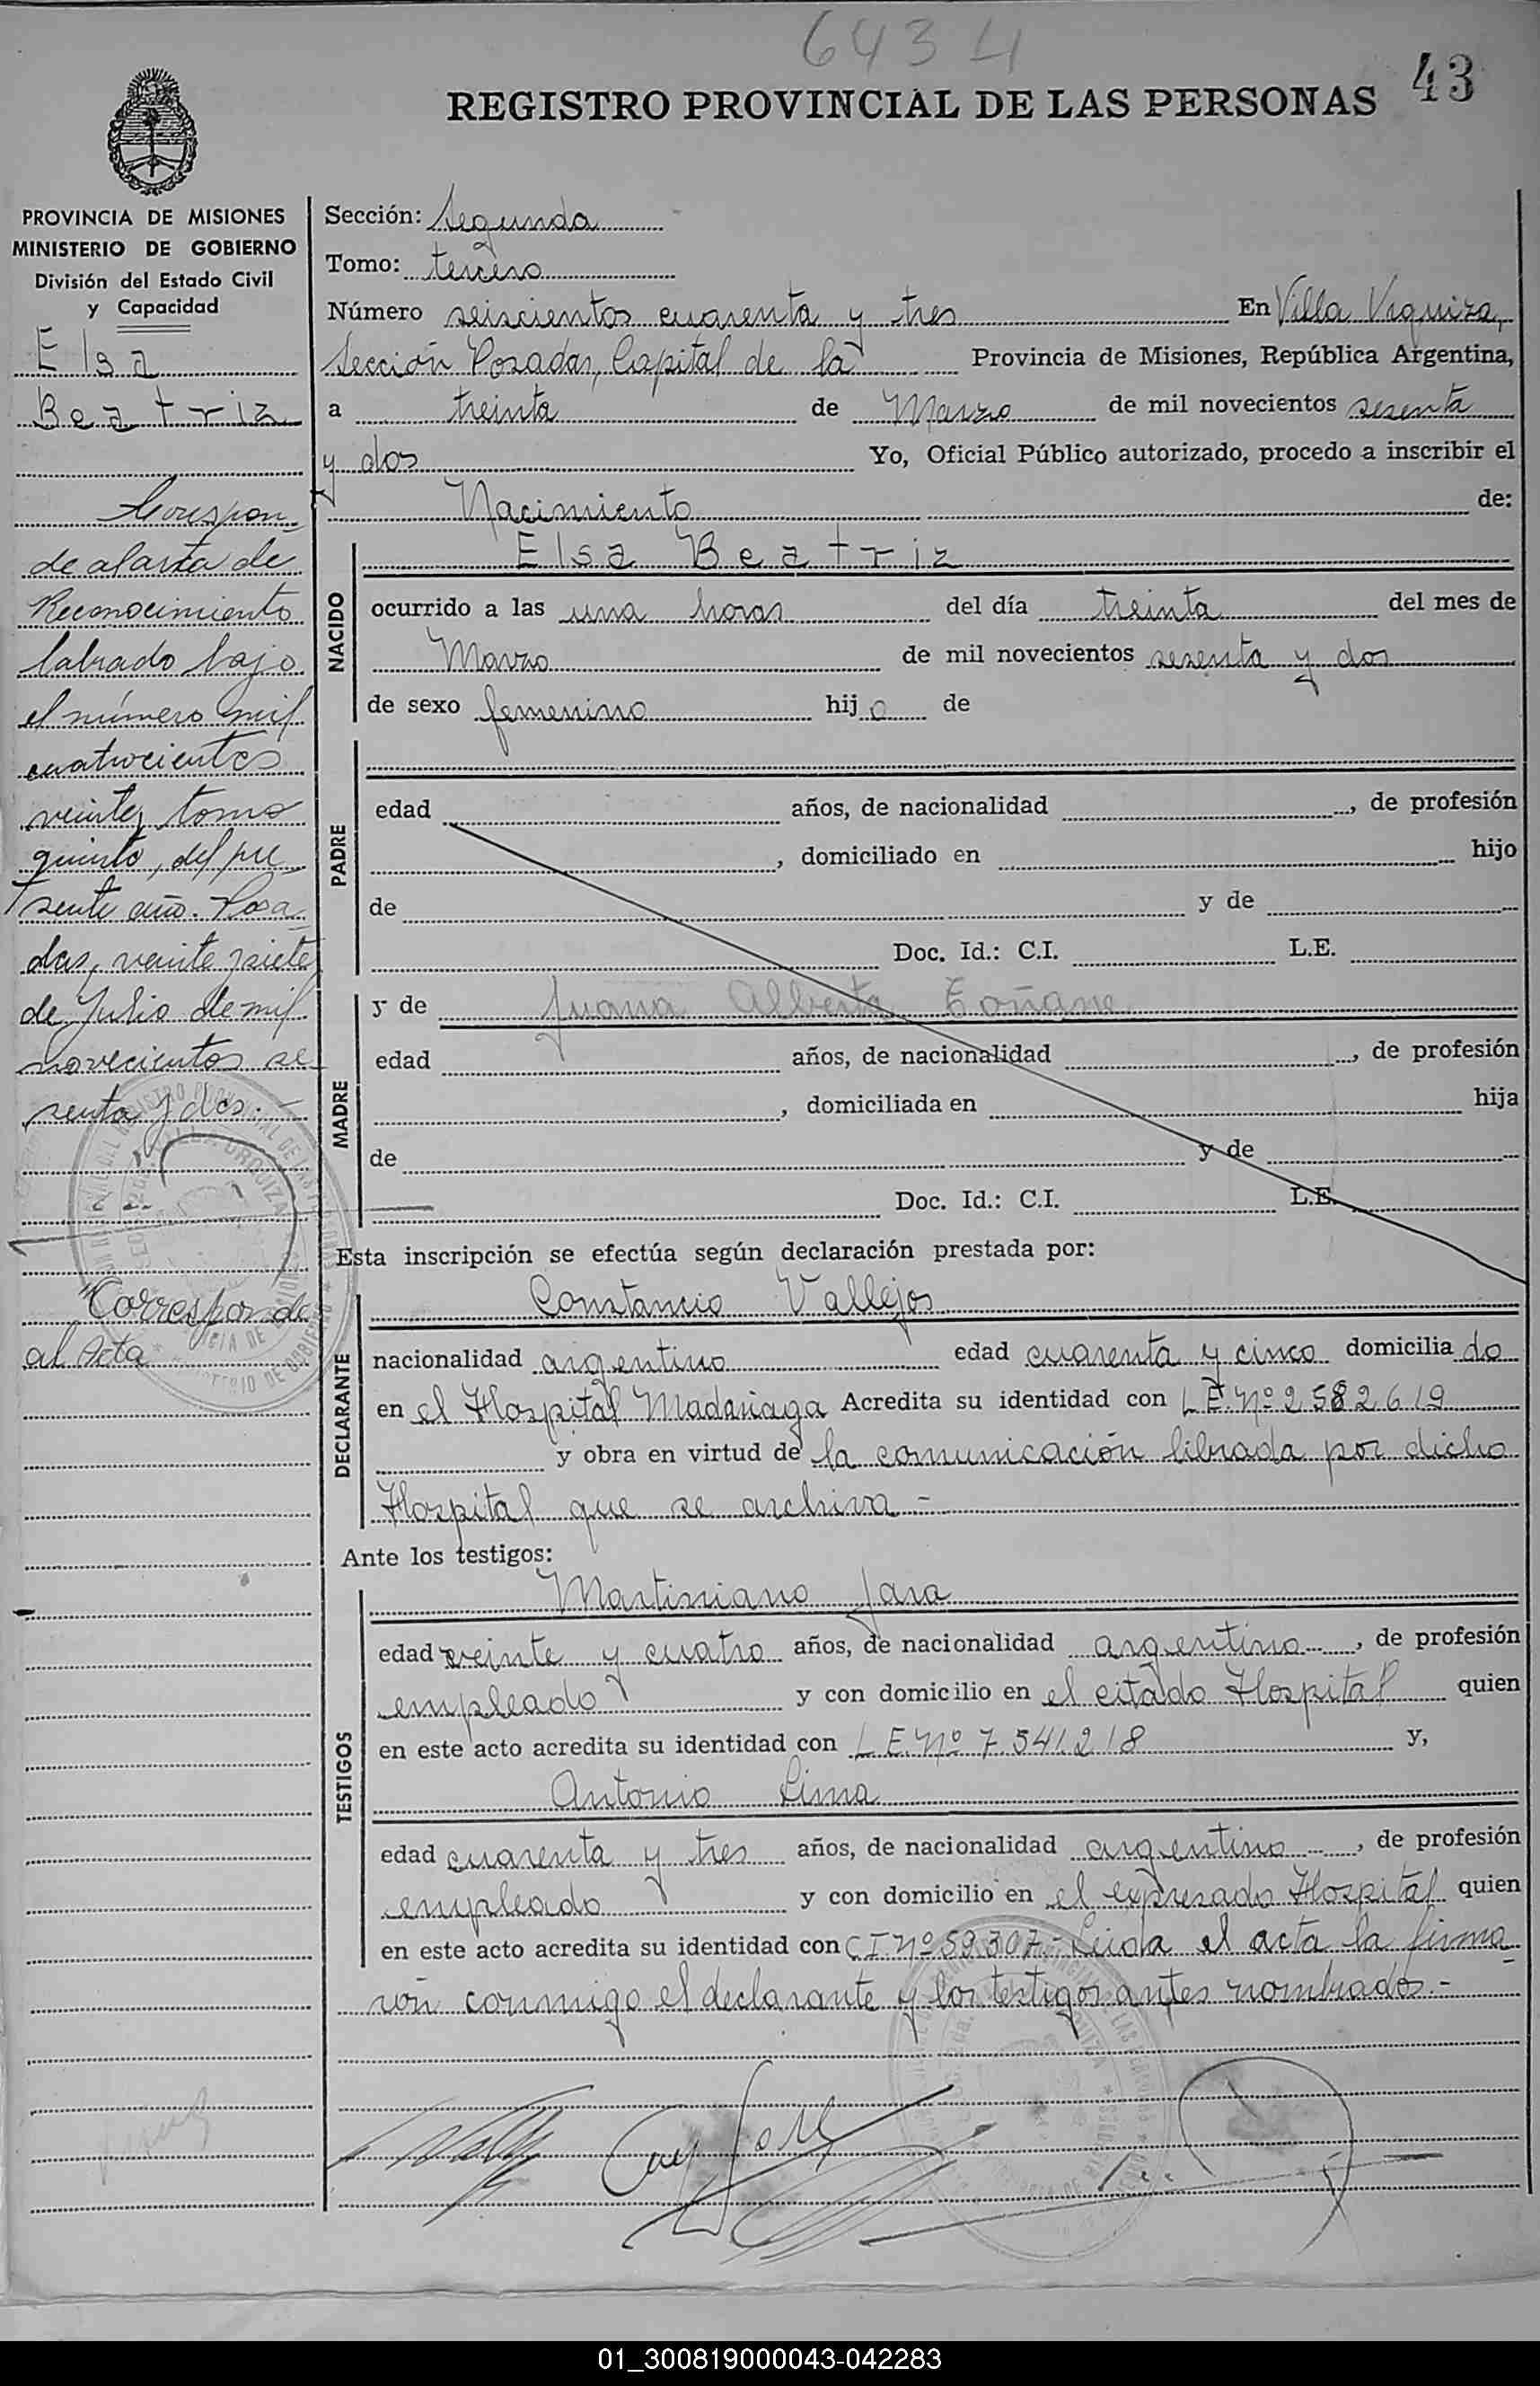 6434
43
REGISTRO PROVINCIAL DE LAS PERSONAS
PROVINCIA DE MISIONES
MINISTERIO DE GOBIERNO
División del Estado Civil
y Capacidad
Elsa
Beatriz
Correspon-
de al acta de
Reconocimiento
labrado bajo
el número mil
cuatrocientos
veinte, tomo
quinto, del pre
sente año. Posa-
das, veinte y siete
de Julio de mil
novecientos se
senta y dos.-
"Corresponde
al Acta
Sección: Segunda
Tomo: tercero
Número seiscientos cuarenta y tres En Villa Urquiza,
Sección Posadas, Capital de la Provincia de Misiones, República Argentina,
a treinta de Marzo de mil novecientos sesenta
y dos Yo, Oficial Público autorizado, procedo a inscribir el
Nacimiento de:
NACIDO
Elsa Beatriz
ocurrido a las una horas del día treinta del mes de
Marzo de mil novecientos sesenta y dos
de sexo femenino hijo de
PADRE
edad años, de nacionalidad , de profesión
, domiciliado en hijo
de y de
Doc. Id.: C.I. L.E.
MADRE
y de Juana Alberta
edad años, de nacionalidad , de profesión
, domiciliada en hija
de y de
Doc. Id.: C.I. L.E.
Esta inscripción se efectúa según declaración prestada por:
DECLARANTE
Constancio Vallejos
nacionalidad argentino edad cuarenta y cinco domicilia do
en el Hospital Madariaga Acredita su identidad con L.E. Nº 2582619
y obra en virtud de la comunicación librada por dicho
Hospital que se archiva -
Ante los testigos:
TESTIGOS
Martiniano Jara
edad veinte y cuatro años, de nacionalidad argentino , de profesión
empleado y con domicilio en el citado Hospital quien
en este acto acredita su identidad con L.E. Nº 7.541.218 y,
Antonio Lima
edad cuarenta y tres años, de nacionalidad argentino , de profesión
empleado y con domicilio en el expresado Hospital quien
en este acto acredita su identidad con C.I. Nº 59.307.- Leida el acta la firma-
ron conmigo el declarante y los testigos antes nombrados.-
01_300819000043-042283